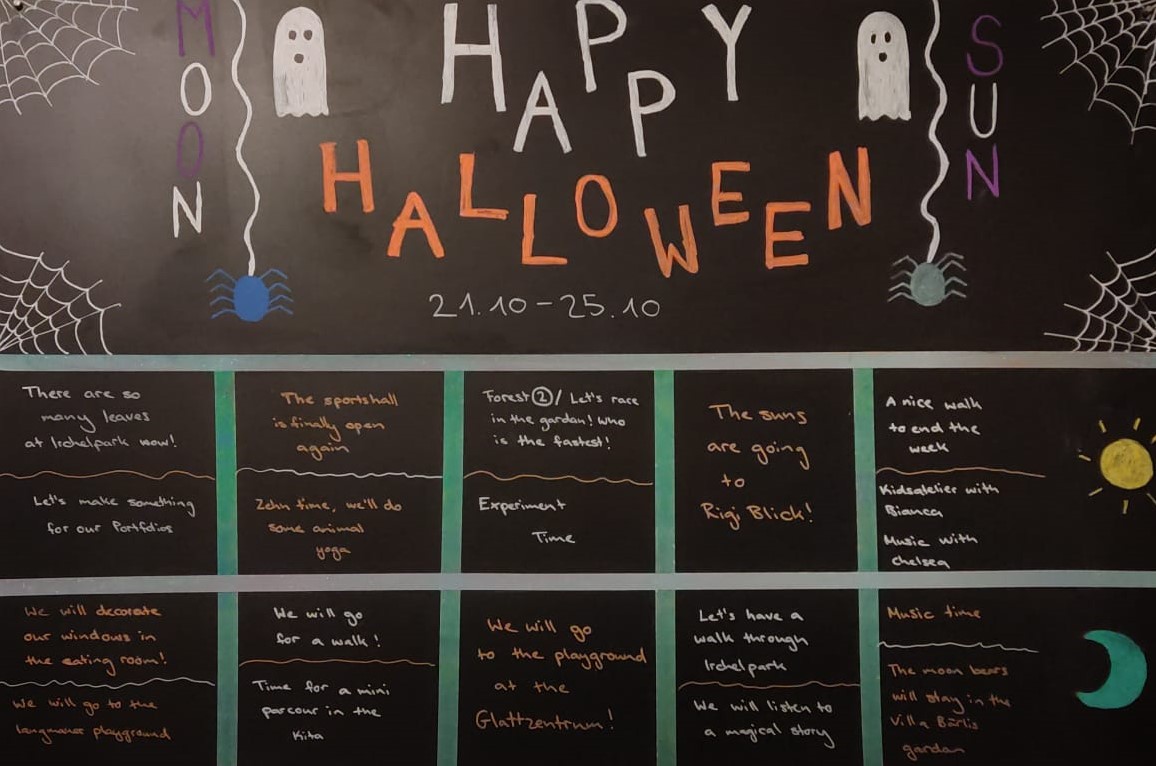 MOON
SUN
HAPPY
HALLOWEEN
21.10 - 25.10
There are so
many leaves
at Irchelpark wow!
Let's make something
for our Portfolios
The sportshall
is finally open
again
Zehn time, we'll do
some animal
yoga
Forest ② / Let's race
in the gardan! Who
is the fastest!
Experiment
Time
The suns
are going
to
Rigi Blick!
A nice walk
to end the
week
Kidsatelier with
Bianca
Music with
chelsea
We will decorate
our windows in
the eating room!
We will go to the
langmauer playground
We will go
for a walk!
Time for a mini
parcour in the
Kita
We will go
to the playground
at the
Glattzentrum!
Let's have a
walk through
Irchelpark
We will listen to
a magical story
Music time
The moon bears
will stay in the
Villa Bärlis
gardan